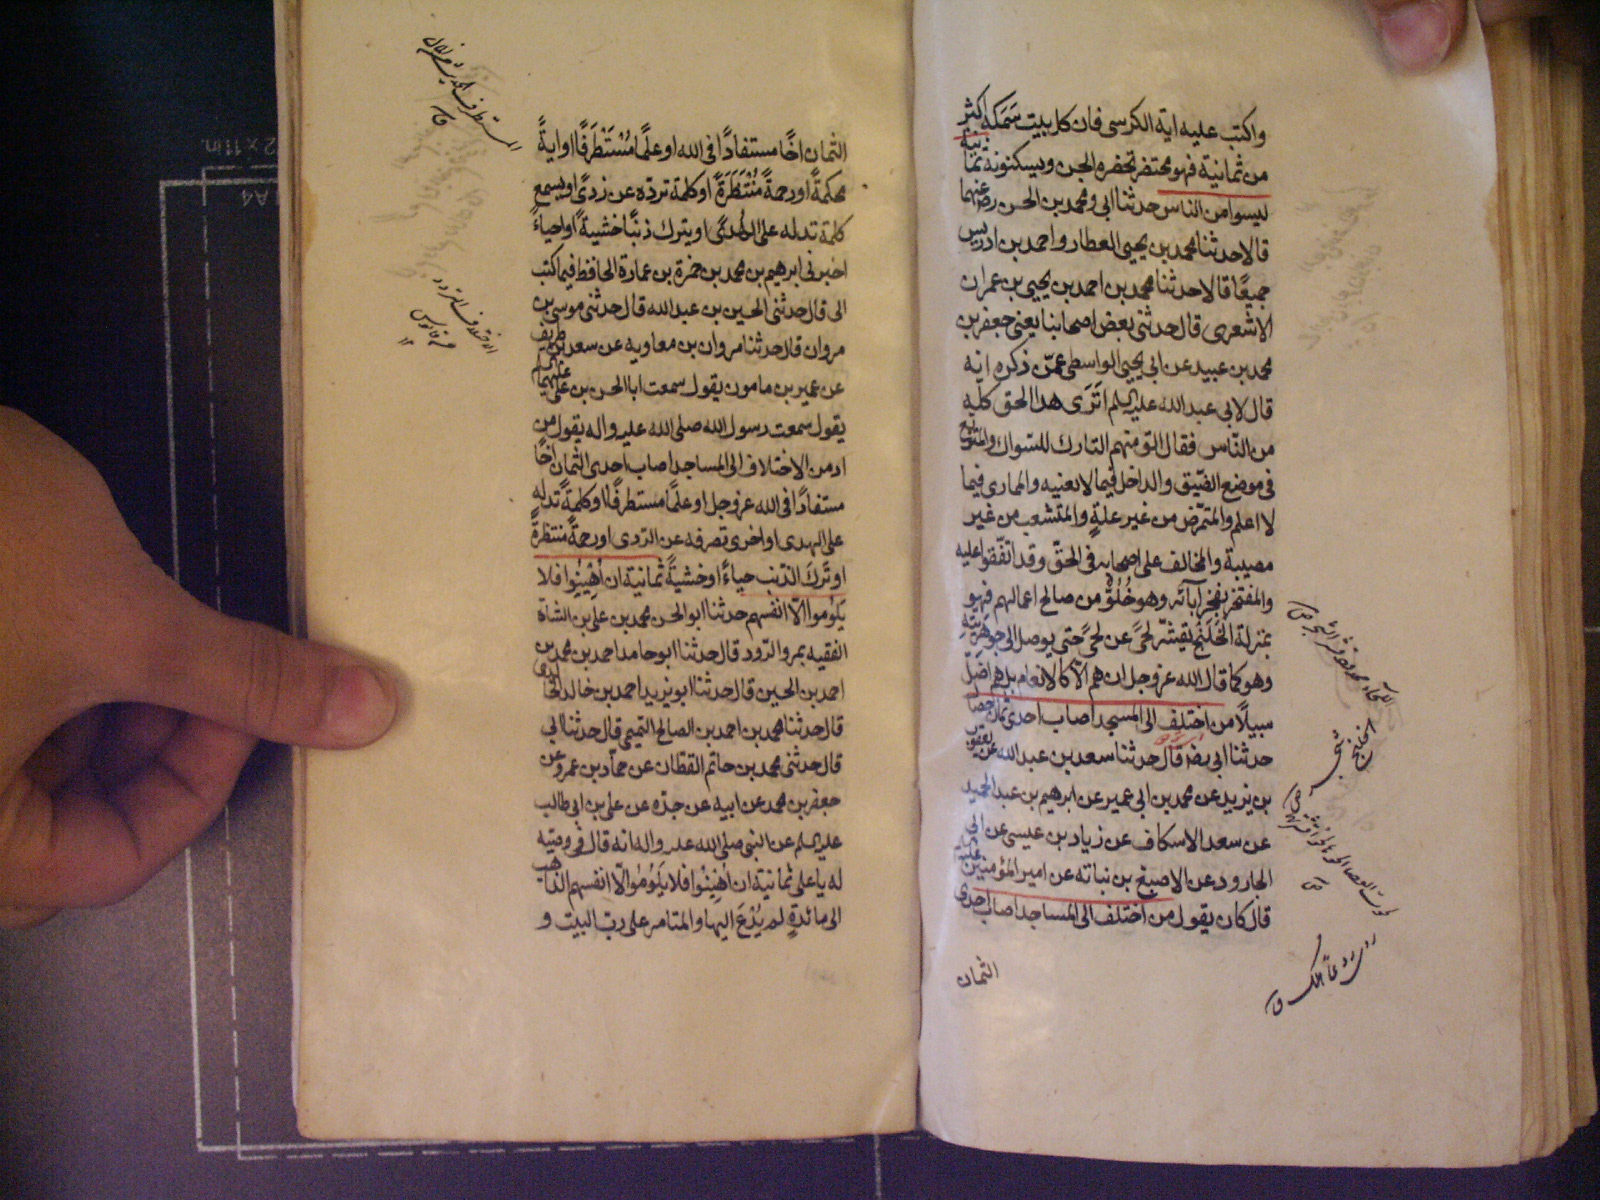 واكتب عليه اية الكرسى فان كل بيت سَمَكه اكثر
من ثمانية فهو محتضر تحضره الجن ويسكنونه ثمانية
ليسوا من الناس حدثنا ابى ومحمد بن الحسن رضى عنهما
قالا حدثنا محمد بن يحيى العطار واحمد بن ادريس
جميعًا قالا حدثنا محمد بن احمد بن يحيى بن عمران
الاشعرى قال حدثنى بعض اصحابنا يعنى جعفر بن
محمد بن عبيد عن ابى يحيى الواسطى عمّن ذكره انه
قال لابى عبد الله عليه السلم اتَرَى هذا الخلق كله
من النّاس فقال الق منهم التارك للسّواك والمتربع
فى موضع الضّيق والداخل فيما لا يعنيه والممارى فيما
لا اعلم والمتمرّض من غير علةٍ والمتشعب من غير
مصيبة والمخالف على اصحابه فى الحقّ وقد اتّفقوا عليه
والمفتخر بفخر آبآئه وهو خُلُوٌّ من صالح اعمالهم فهو
بمنزلة الخَلَنْج يقشّر لحًى عن لحًى حتى يوصل الى جوهريّته
وهو كما قال الله عز وجل ان هم الّا كالانعام بل هم اضل
سبيلًا من اختلف الى المسجد اصاب احدى ثمان خصال
حدثنا ابى رضه قال حدثنا سعد بن عبد الله عن يعقوب
بن يزيد عن محمد بن ابى عمير عن ابرهيم بن عبد الحميد
عن سعد الاسكاف عن زياد بن عيسى عن ابى
الجارود عن الاصبغ بن نباته عن امير المؤمنين
قال كان يقول من اختلف الى المساجد اصاب احدى
الثمان
الثمان اخًا مستفادًا فى الله او علمًا مُسْتَطْرَفًا او ايةً
محكمةً او رحمةً مُنْتَظَرَةً او كلمة تردّه عن ردًى او يسمع
كلمة تدله على الهُدى او يترك ذنبًا خشيةً او حياءً
اخبرنى ابرهيم بن محمد بن حمزة بن عمارة الحافظ فيما كتب
الى قال حدثنى الحسين بن عبد الله قال حدثنى موسى بن
مروان قال حدثنا مروان بن معاويه عن سعد بن طريف
عن عمير بن مامون يقول سمعت ابا الحسن بن على عليهما
يقول سمعت رسول الله صلى الله عليه واله يقول من
ادمن الاختلاف الى المساجد اصاب احدى الثمان اخًا
مستفادًا فى الله عز وجل او علمًا مستطرفًا او كلمةً تدله
على الهدى او اخرى تصرفه عن الرّدى او رحمةً منتظرةً
او تَركَ الذنب حياءً او خشيةً ثمانية ان اُهِينُوا فلا
يَلُومُوا الّا انفسهم حدثنا ابو الحسن محمد بن على بن الشاة
الفقيه بمرو الرّود قال حدثنا ابو حامد احمد بن محمد بن
احمد بن الحسين قال حدثنا ابو يزيد احمد بن خالد الخالدى
قال حدثنا محمد بن احمد بن الصالح التميمى قال حدثنا ابى
قال حدثنى محمد بن حاتم القطان عن حمّاد بن عمرو عن
جعفر بن محمد عن ابيه عن جدّه عن على بن ابى طالب
عليه السلم عن النبى صلى الله عليه واله انه قال فى وصيّته
له يا على ثمانية ان اُهينُوا فلا يَلُومُوا الّا انفسهم الذّاهب
الى مائدةٍ لم يُدْعَ اليها والمتامر على ربّ البيت و